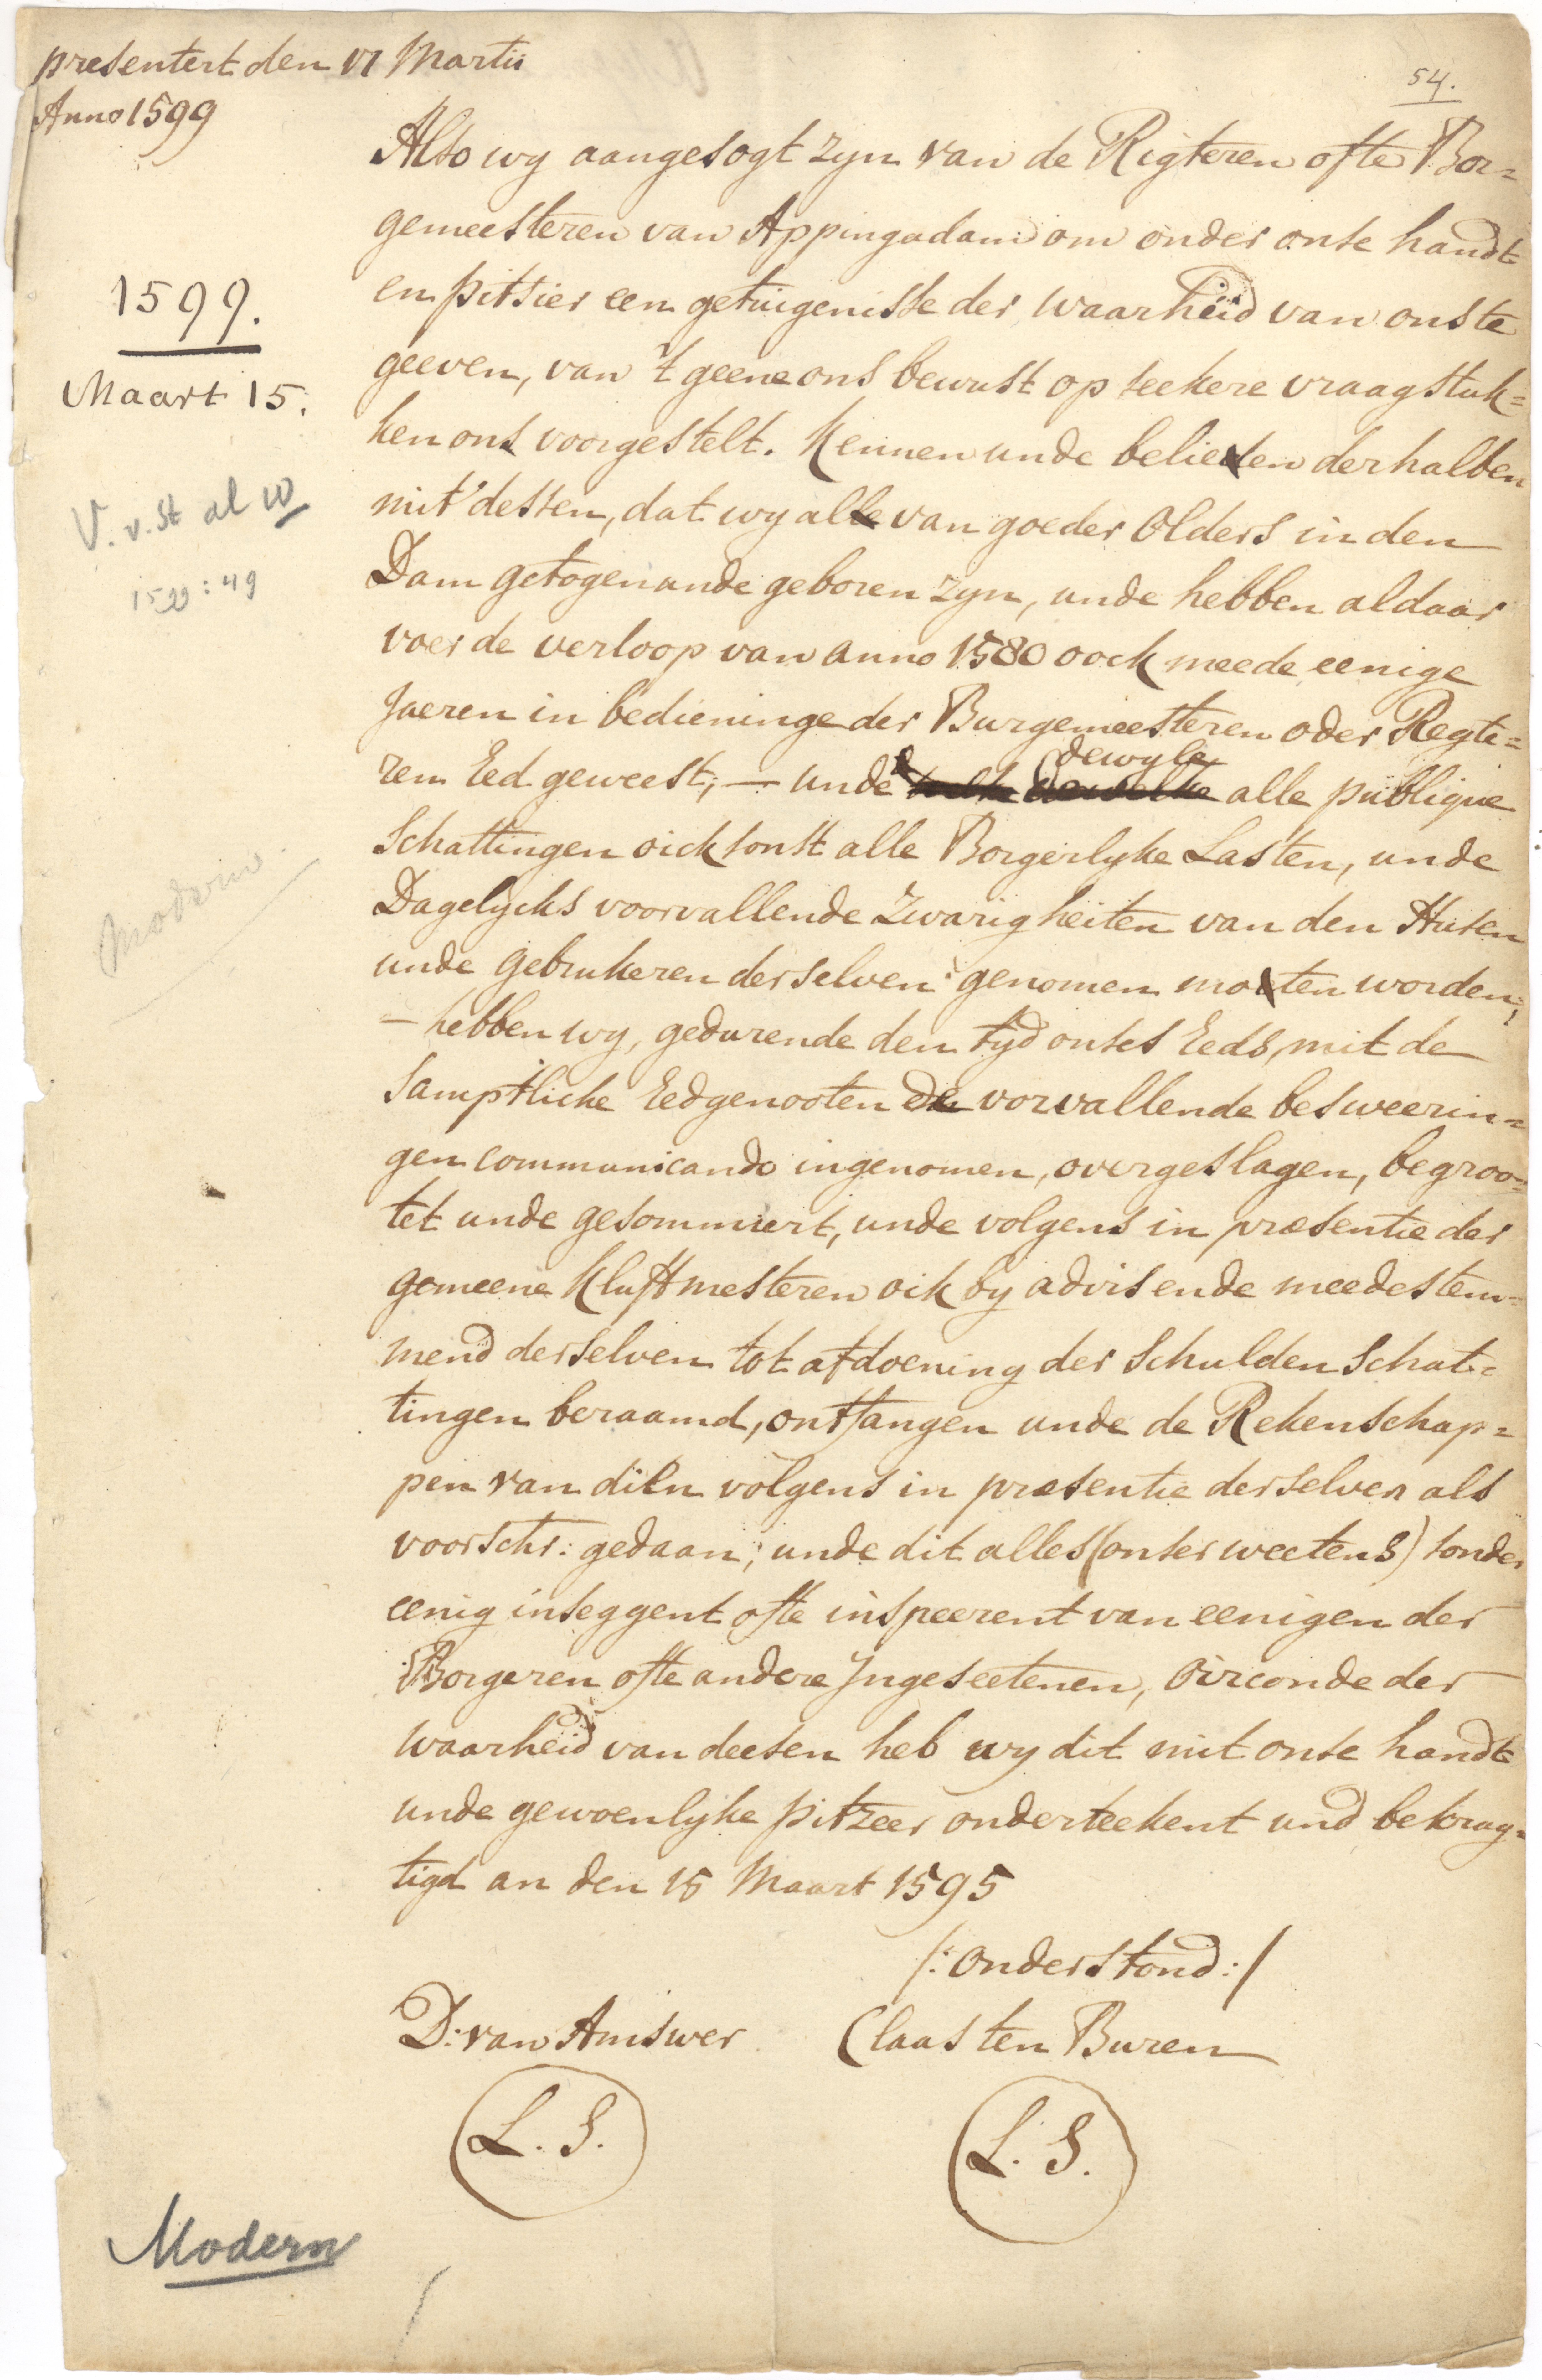 presentert den VI Martii
Anno 1599
54.
Also wy aangesogt zyn van de Rigteren ofte Bor=
gemeesteren van Appingadam om onder onse handt
en pitsier een getuigenisse der waarheid van ons te
geeven, van 't geene ons bewust op seekere vraagstuk=
ken ons voorgestelt. Kennen unde belieten derhalben
mit dessen, dat wy alle van goeder Olders in den
Dam getogen unde geboren zyn, unde hebben aldaar
voer de verloop van anno 1580 oock meede eenige
Jaeren in bedieninge der Burgemeesteren oder Regte=
ren Eed geweest; — unde dewyle alle publique
Schattingen oick sonst alle Borgerlyke Lasten, unde
Dagelycks voorvallende Zwarigheiten van den Husen
unde gebrukeren derselven genomen moeten worden;
— hebben wy, gedurende den tyd onses Eeds, mit de
samptliche Eedgenooten de vorvallende besweerin=
gen communicando ingenomen, overgeslagen, begroo=
tet unde gesommiert, unde volgens in præsentie der
gemeene Kluftmesteren oik by advis ende meedestem=
mend derselven tot afdoening der Schulden Schat=
tingen beraamd, ontfangen unde de Rekenschap=
pen van dien volgens in præsentie derselven als
voorschr: gedaan; unde dit alles (onser weetens) sonder
eenig inseggent ofte inspeerent van eenigen der
Borgeren ofte andere Jngeseetenen, Oirconde der
waarheid van deesen heb wy dit mit onse handt
unde gewoenlyke pitzeer onderteekent und bekrag=
tigd an den 15 Maart 1595
/: onderstond :/
D: van Amswer Claas ten Buren
L. S. L. S.
1599.
Maart 15.
V. v. St al W
1599 : 49
Modern
Modern